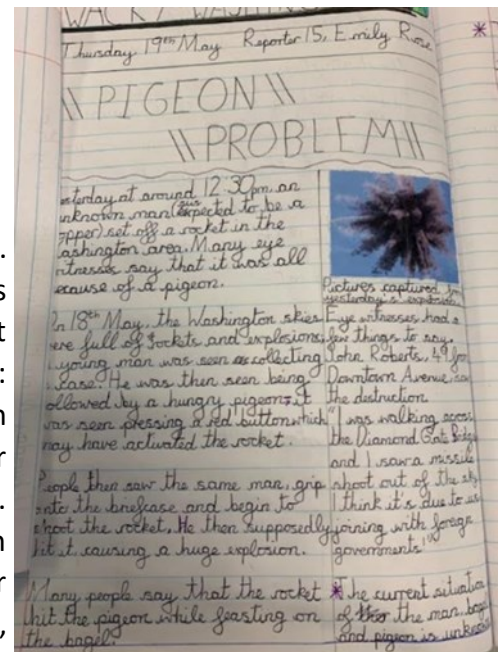 WACKY WASHING
Thursday 19th May Reporter 15, Emily Rose
\\ PIGEON \\
\\ PROBLEM \\
esterday at around 12:30pm, an
nknown man (suspected to be a
) set off a rocket in the
ashington area. Many eye
itnesses say that it was all
ecause of a pigeon.
n 18th May, the Washington skies
ere full of rockets and explosions,
young man was seen collecting
case. He was then seen being
ollowed by a hungry pigeon; it
as seen pressing a red button which
may have activated the rocket.
People then saw the same man, grip
onto the briefcase and begin to
shoot the rocket. He then supposedly
hit it, causing a huge explosion.
Many people say that the rocket
hit the pigeon while feasting on
the bagel.
*
Pictures captured
yesterday's explosion.
Eye witnesses had a
few things to say.
John Roberts, 49
Downtown Avenue,
the destruction
"I was walking across
the Diamond Gate Bridge
and I saw a missile
shoot out of the sky
I think it's due to us
joining with foreign
governments!"
*The current situation
of the man,
and pigeon is unknown